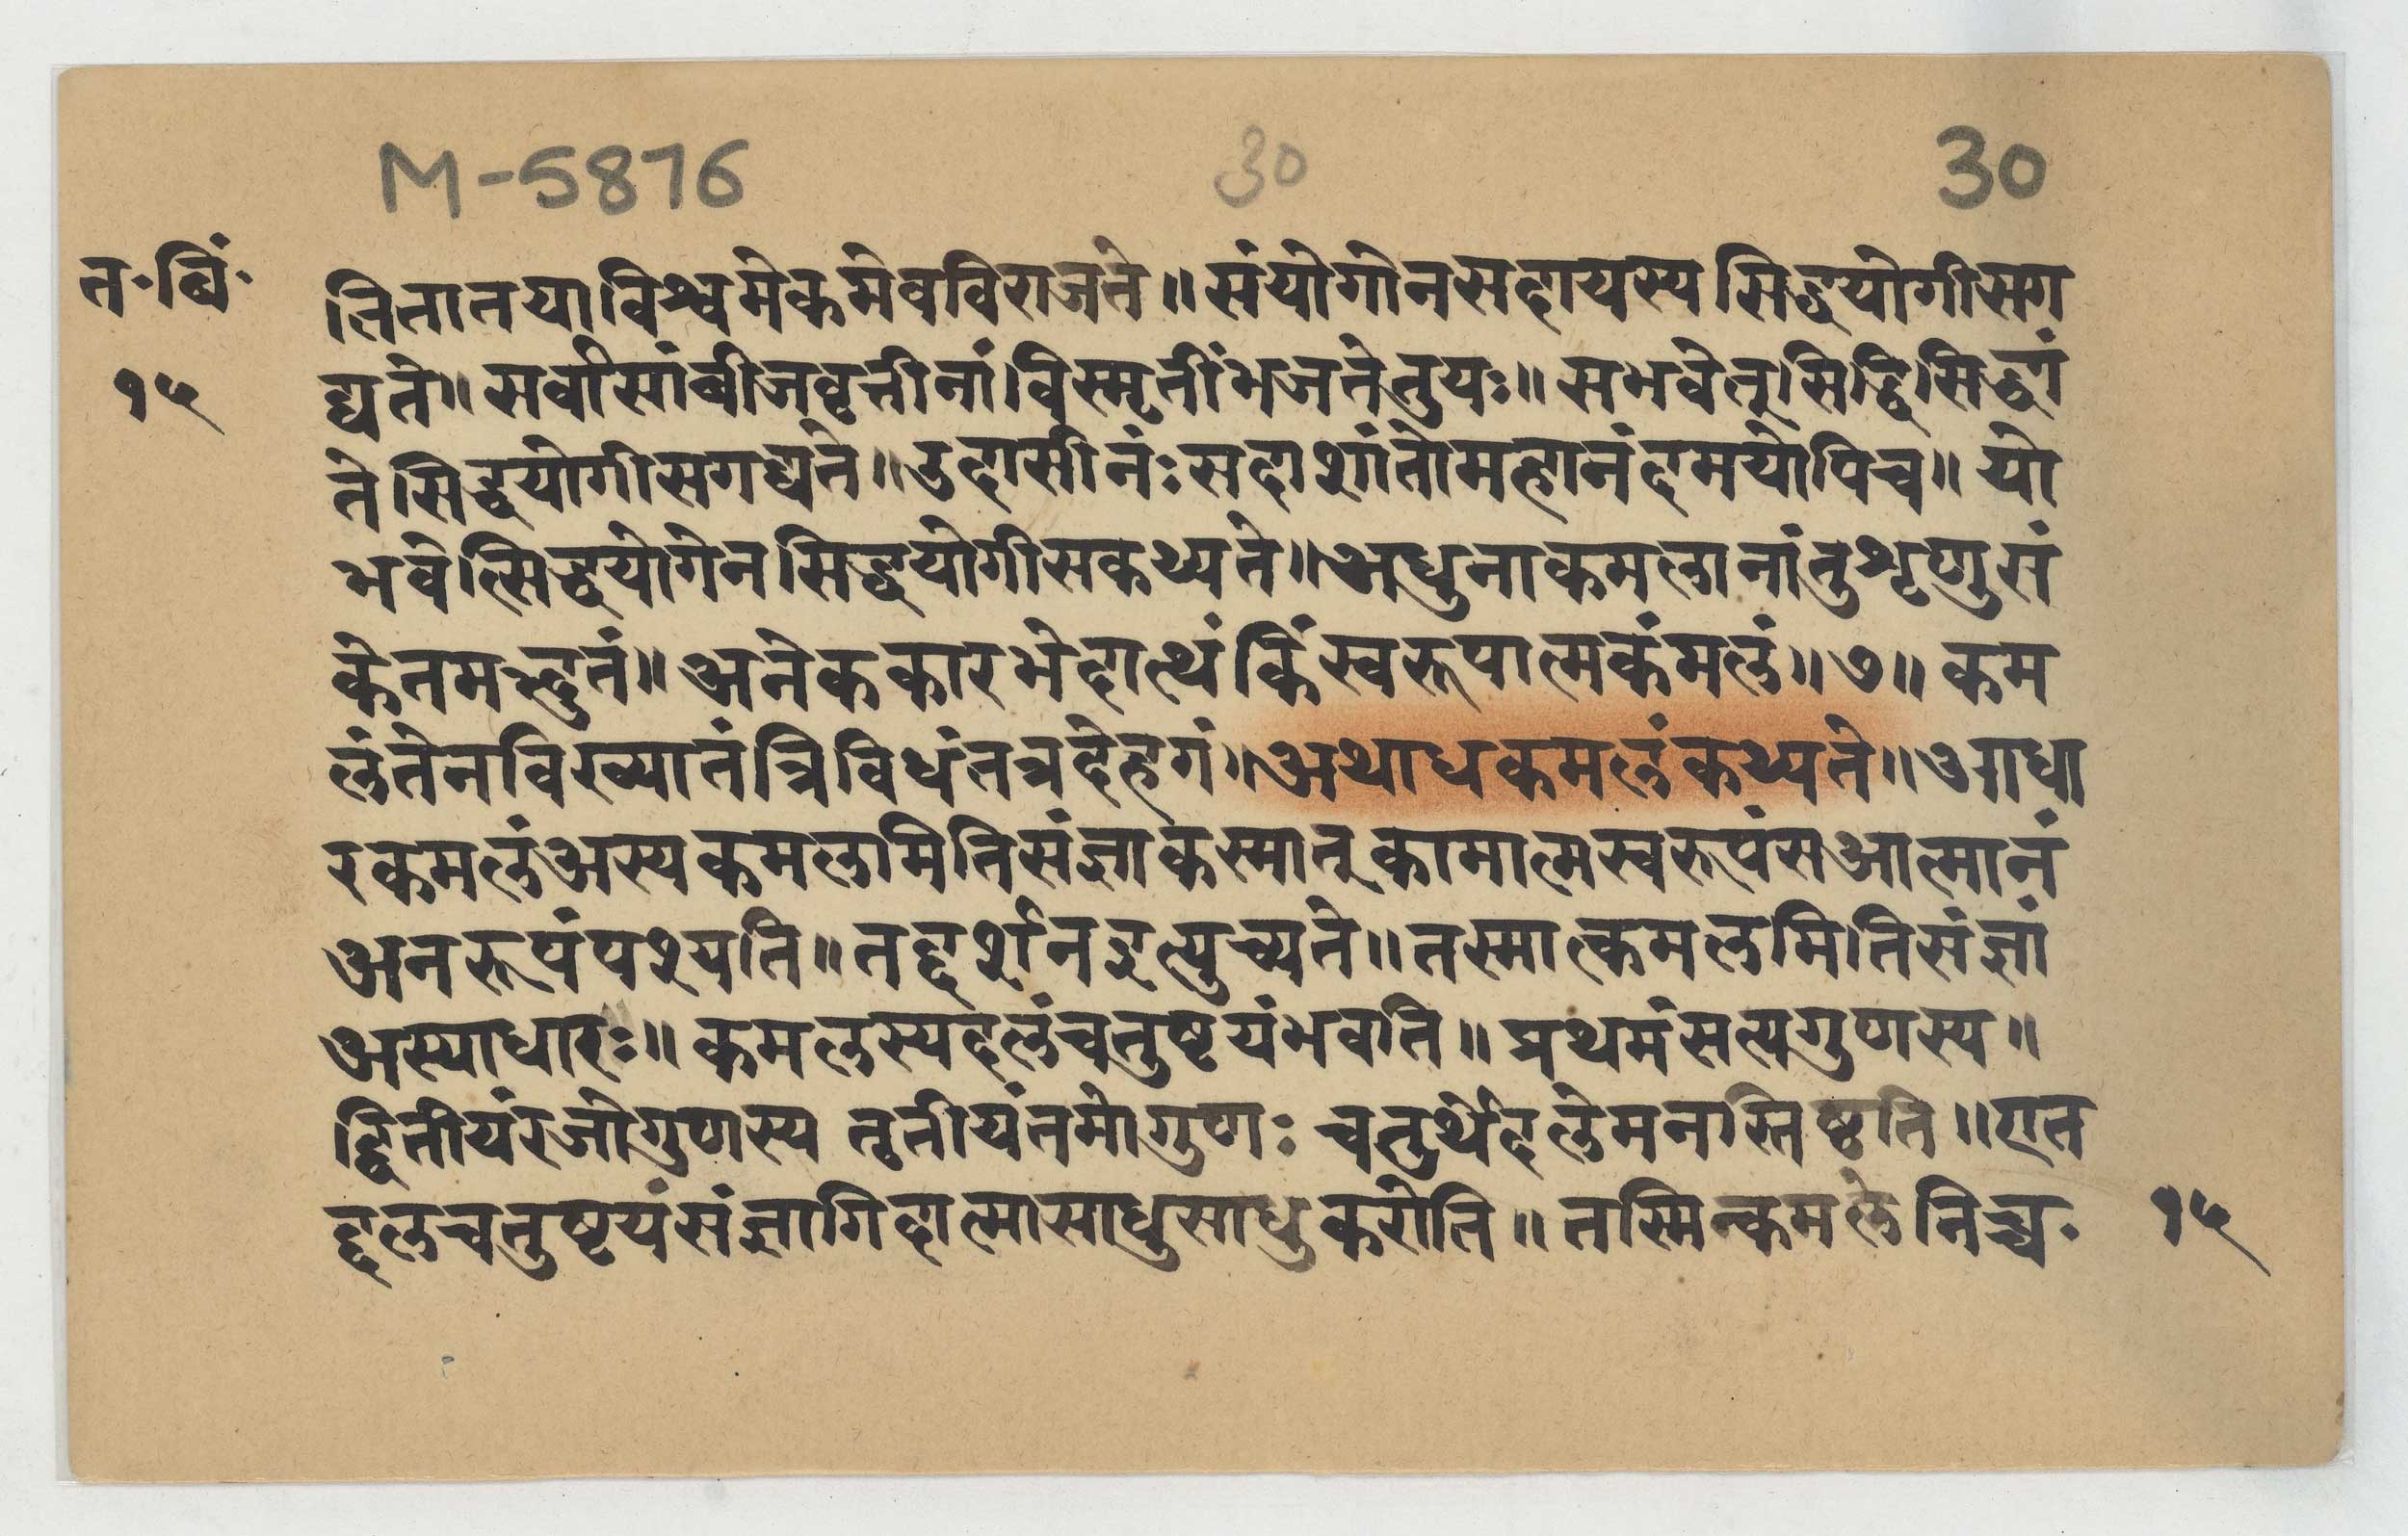 M-5876 30 30
त॰बिं॰
१५
तितातयाविश्वमेकमेवविराजते॥संयोगोनसदायस्यसिद्धयोगीसग
द्यते॥सर्वासांबीजवृत्तीनांविस्मृतींभजतेतुयः॥सभवेत्सिद्धिसिद्धां
तेसिद्धयोगीसगद्यते॥उदासीनंःसदाशांतोमहानंदमयोपिच॥यो
भवेत्सिद्धयोगेनसिद्धयोगीसकथ्यते॥अधुनाकमलानांतुशृणुसं
केतमद्भुतं॥अनेककारभेदात्थंकिंस्वरूपात्मकंमलं॥७॥कम
लंतेनविख्यातंत्रिविधंतत्रदेहगं॥अथाधकमलंकथ्यते॥आधा
रकमलंअस्यकमलमितिसंज्ञाकस्मात्कामात्मस्वरूपंसआत्मानं
अनरूपंपश्यति॥तद्दर्शनइत्युच्यते॥तस्मात्कमलमितिसंज्ञां
अस्याधारः॥कमलस्यदलंचतुष्टयंभवति॥प्रथमंसत्यगुणस्य॥
द्वितीयंरजोगुणस्य तृतीयंतमोगुणः चतुर्थेदलेमनस्तिष्ठति॥एत
द्दलचतुष्टयंसंज्ञागिदात्मासाधुसाधुकरोति॥तस्मिन्कमलेनिश्च॰
१५